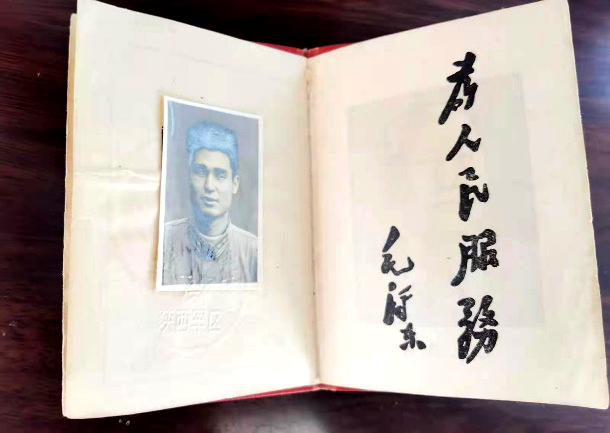 陕西军区
为人民服務
毛泽东